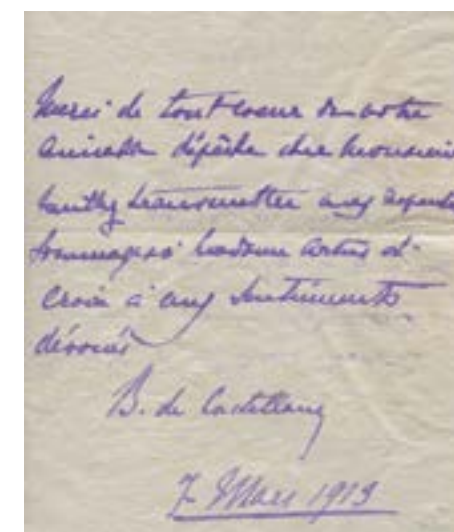 Merci de tout coeur de votre
aimable dépêche cher Monsieur
veuillez transmettre mes respects
hommages à Madame et
croire à mes sentiments
dévoués
B. de Castellane
7 Mars 1913